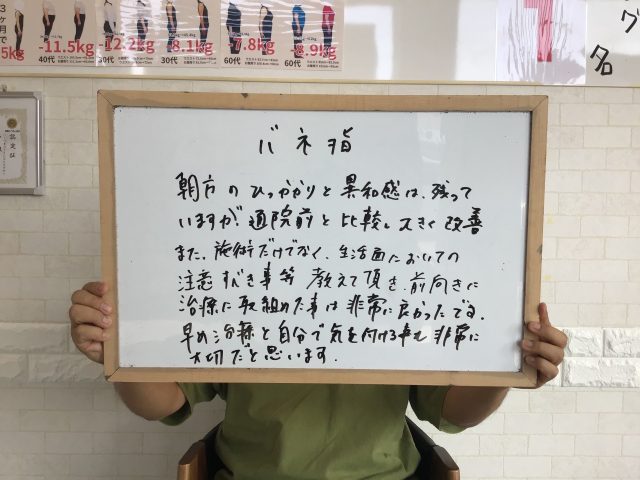 3ヶ月で
5kg
-11.5kg
40代
-12.2kg
30代
-8.1kg
30代
-7.8kg
60代
-8.9kg
60代
グ
名
認定証
バネ指
朝方のひっかかりと異和感は、残って
いますが、通院前と比較し大きく改善
また、施術だけでなく、生活面においての
注意すべき事等 教えて頂き、前向きに
治療に取組めた事は非常に良かったです。
早め治療と自分で気を付ける事も非常に
大切だと思います。